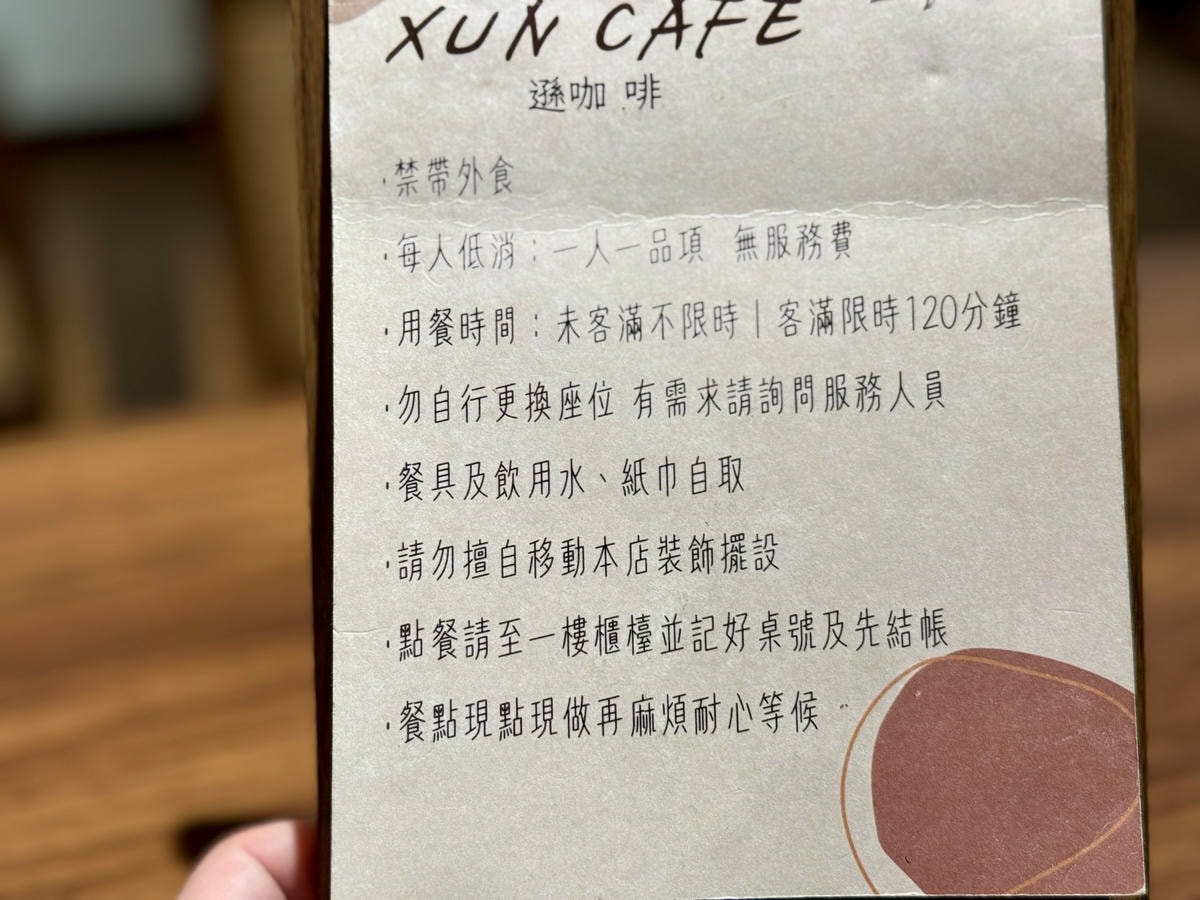 XUN CAFE
遜咖 啡
·禁帶外食
·每人低消：一人一品項 無服務費
·用餐時間：未客滿不限時｜客滿限時120分鐘
·勿自行更換座位 有需求請詢問服務人員
·餐具及飲用水、紙巾自取
·請勿擅自移動本店裝飾擺設
·點餐請至一樓櫃檯並記好桌號及先結帳
·餐點現點現做再麻煩耐心等候